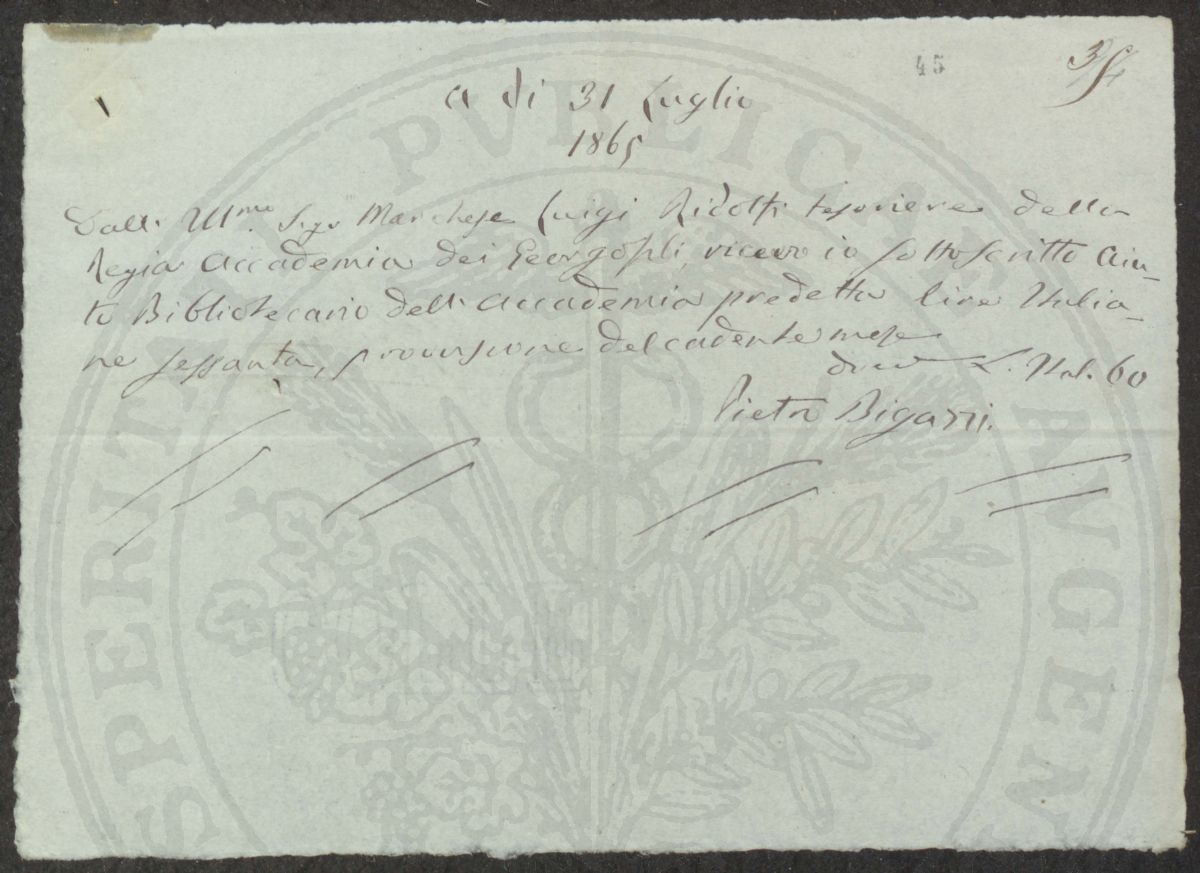 45
a di 31 Luglio
1865
Dall' Ill.mo Sigr Marchese Luigi Ridolfi tesoriere della
Regia Accademia dei Georgofili, ricevo io sottoscritto Aiu-
to Bibliotecario dell' Accademia predetta lire Italia-
ne sessanta, provvisione del cadente mese
dico L. Ital. 60
Pietro Bigazzi.
SPERITATI PVBLICAE AVGEN